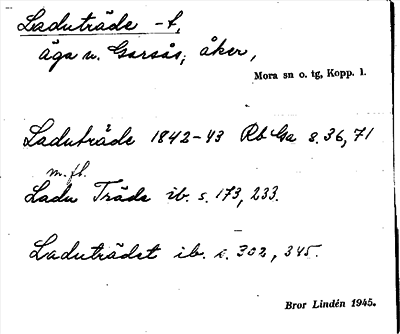 Laduträde -t,
äga v. Garsås; åker,
Mora sn o. tg, Kopp. l.
Laduträde 1842-43 Rb Ga s. 36, 71
m. fl.
Ladu Träde ib. s. 173, 233.
Laduträdet ib. s. 302, 345.
Bror Lindén 1945.